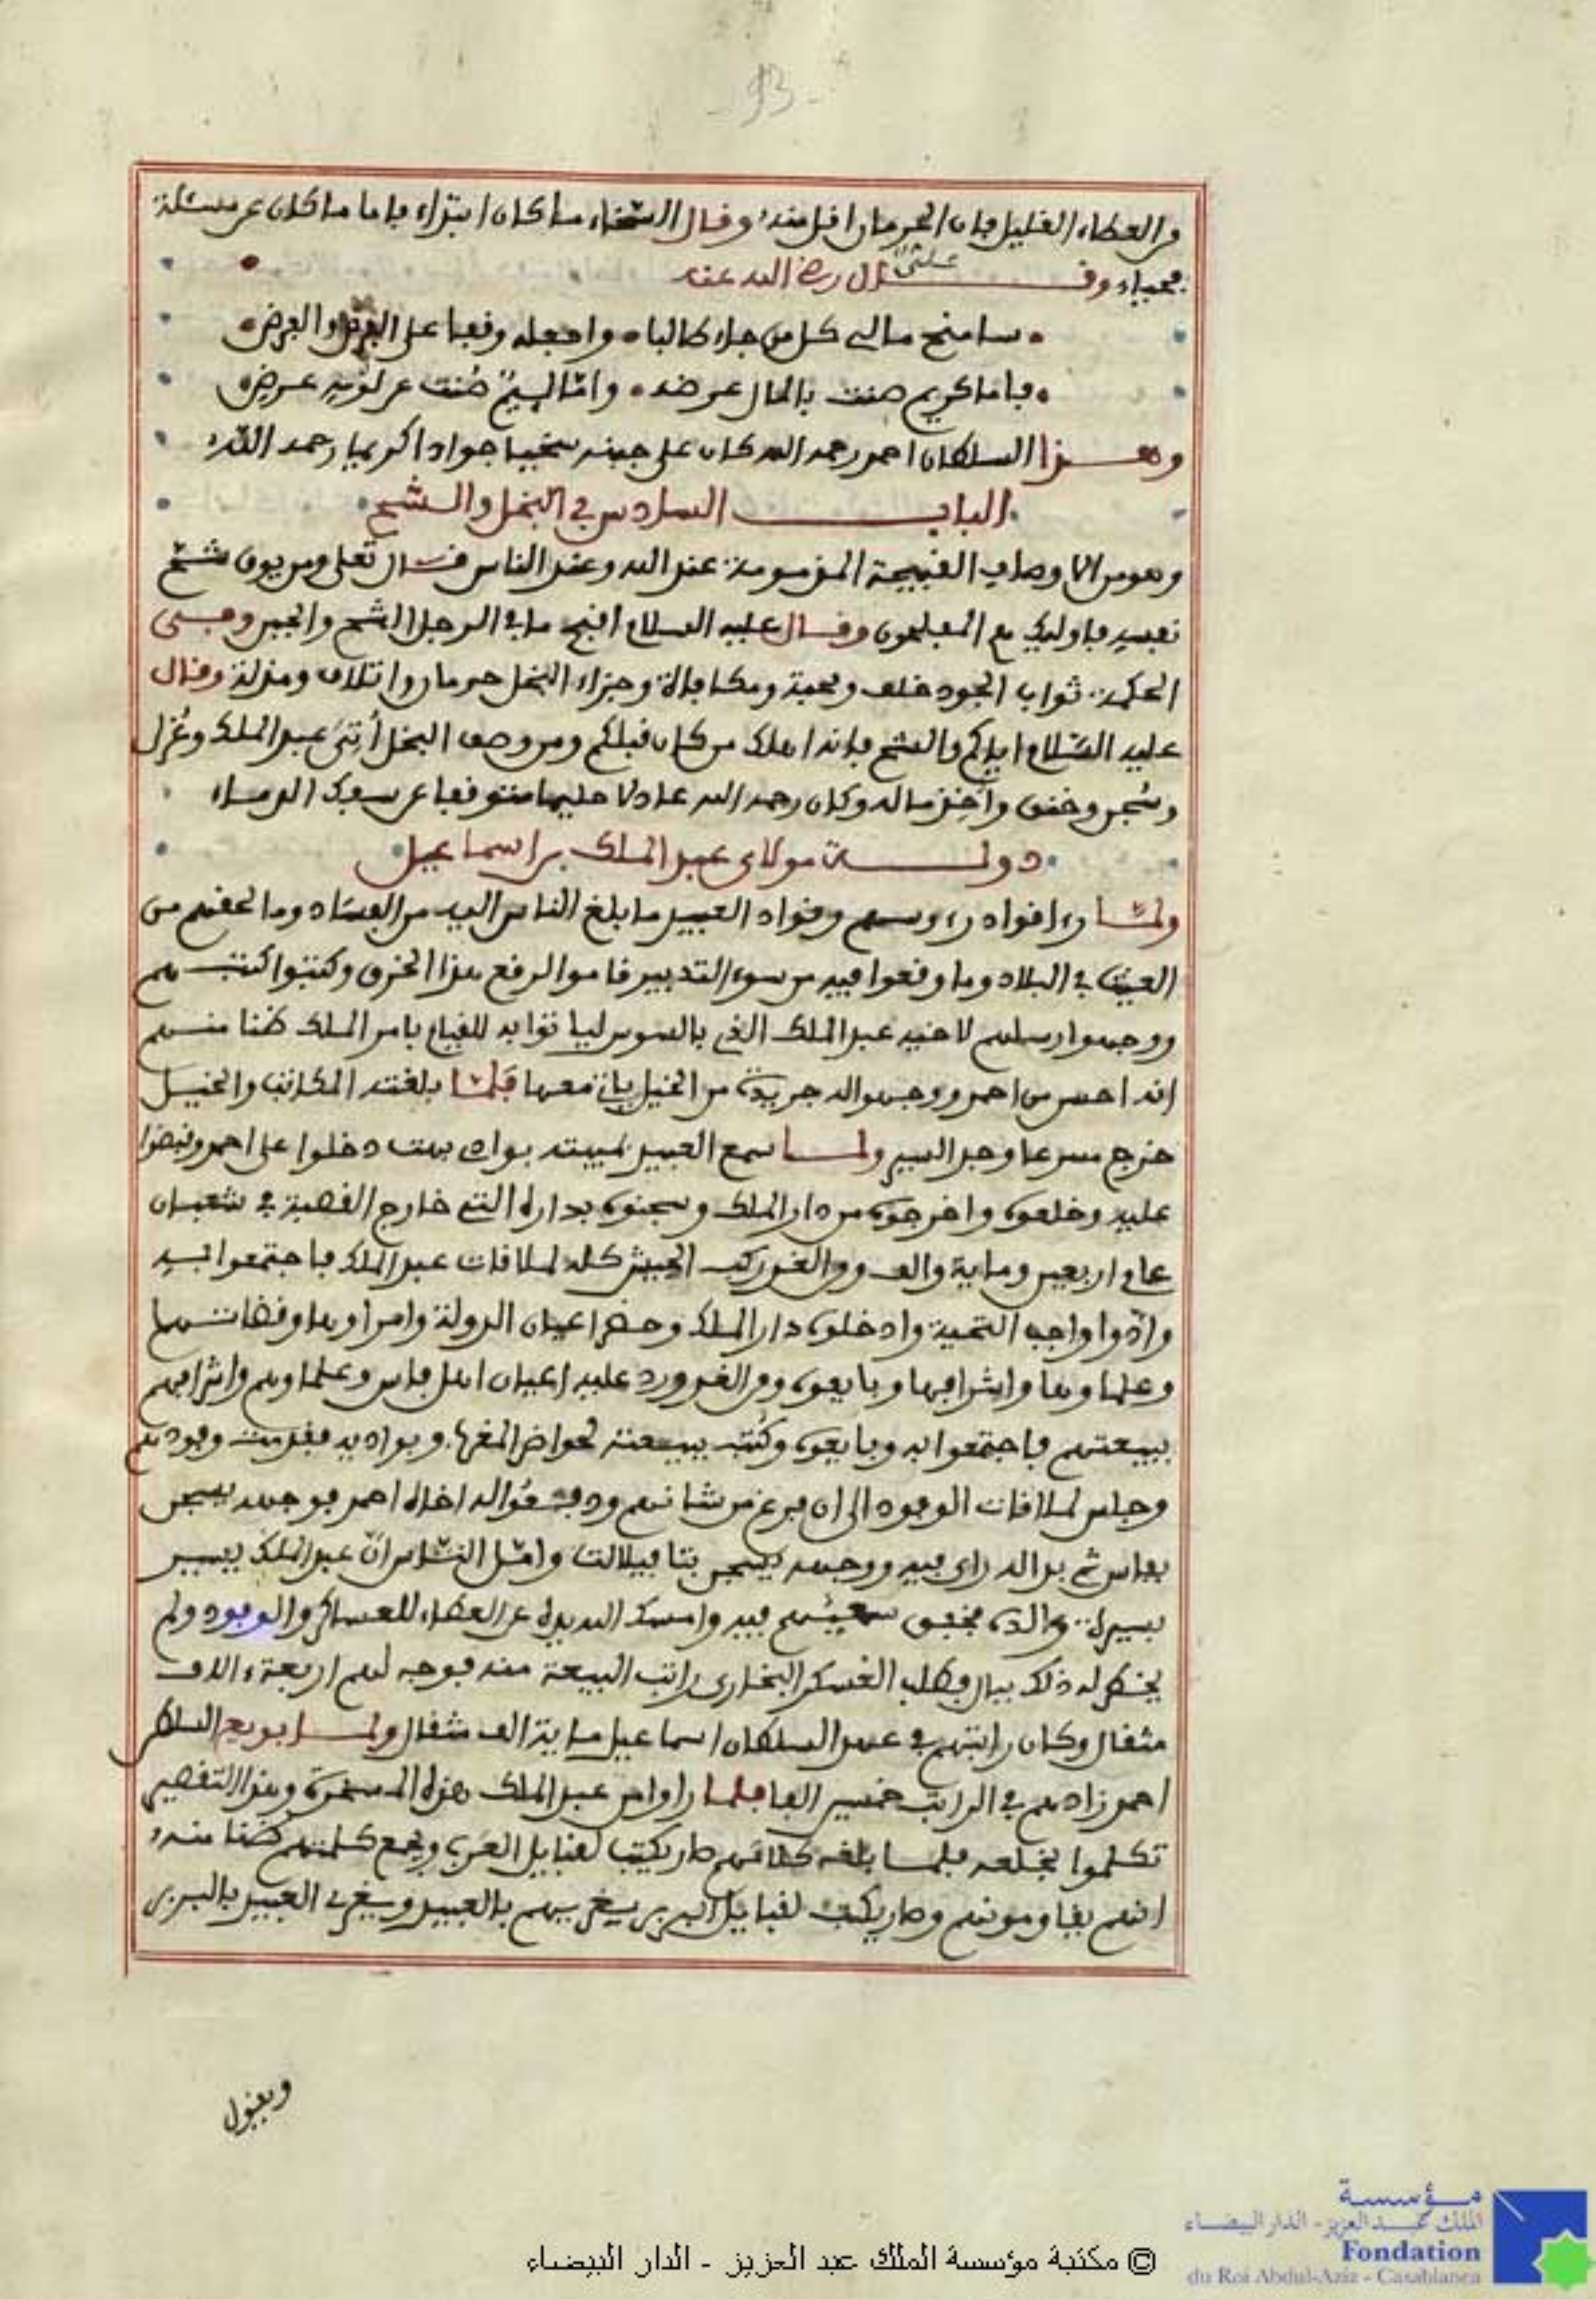 - 93 -
من العطاء القليل فإن الحرمان اقل منه وقال السخاء ما كان ابتداء فاما ما كان عن مسئلة
فحياء وقال علىّ رضي الله عنه
سامنح مالي كل من جاء طالبا • واجعله وقفا على القرض والفرض
فاما كريم صنت بالمال عرضه • وامّا لئيمٌ صُنت عن لؤمه عرضي
وهذا السلطان احمد رحمه الله كان على جبنه سخيا جوادا كريما رحمه الله
الباب السادس في البخل والشح
وهو من الاوصاف القبيحة المذمومة عند الله وعند الناس قال تعلى ومن يوق شح
نفسه فاوليك هم المفلحون وقال عليه السلام اقبح ما في الرجل الشح والجبن وفى
الحكمة ثواب الجود خلف ومحبة ومكافاة وجزاء البخل حرمان واتلاف ومذلة وقال
عليه السّلام اياكم والشح فانه اهلك من كان قبلكم ومن وصف البخل أُتىَ عبد الملك وعُزل
وسُجن وخنق وأُخذ ماله وكان رحمه الله عادلا حليما متوقفا عن سفك الدماء
دولة مولاى عبد الملك بن اسماعيل
ولمّا رءا قواد رءوسهم وقواد العبيد ما بلغ الناس اليه من الفساد وما لحقهم من
العيث في البلاد وما وقعوا فيه من سوء التدبير قاموا لرقع هذا الخرق وكتبوا كتبهم
ووجهوا رسلهم لاخيه عبد الملك الذي بالسوس لياتوا به للقيام بامر الملك ظنا منهم
انه احسن من احمد ووجهوا له جريدة من الخيل ياتى معها فلمّا بلغته المكاتب والخيل
خرج مسرعا وجد السير ولما سمع العبيد بمبيته بواد بهت دخلوا على احمد وقبضوا
عليه وخلعوه واخرجوه من دار الملك وسجنوه بداره التي خارج القصبة في شعبان
عام اربعين وماية والف ومن الغد ركب الجيش كله لملاقات عبد الملك فاجتمعوا به
وادّوا واجب التحية وادخلوه دار الملك وحضر اعيان الدولة وامراوها وقضاتها
وعلماوها واشرافها وبايعوه ومن الغد ورد عليه اعيان اهل فاس وعلماوهم واشرافهم
ببيعتهم فاجتمعوا به وبايعوه وكُتب ببيعته لحواضر المغرب وبواديه فقدمت وفودهم
وجلس لملاقات الوفود الى ان فرغ من شانهم ودفعُوا له اخاه احمد فوجهه يسجن
بفاس ثم بدا له راى فيه ووجهه يسجن بتافيلالت وامّل النّاس انّ عبد الملك يسير
بسيرة والده فخفق سعيُهم فيه وامسك الله يده عن العطاء للعساكر والوفود ولم
يخطر له ذلك ببال وطلب العسكر البخارى راتب البيعة منه فوجه لهم اربعة ءالاف
مثقال وكان راتبهم في عهد السلطان اسماعيل ماية الف مثقال ولما بويع السلطان
احمد زادهم في الراتب خمسين الفا فلما راوا من عبد الملك هذه المسخرة وهذا التقصير
تكلموا بخلعه فلما بلغه كلامهم صار يكتب لقبايل العرب ويجمع كلمتهم ظنا منه
انهم يقاومونهم وصار يكتب لقبايل البربر يغريهم بالعبيد ويغرى العبيد بالبربر
ويقول
© مكتبة مؤسسة الملك عبد العزيز - الدار البيضاء
مؤسسة
الملك عبد العزيز - الدار البيضاء
Fondation
du Roi Abdul-Aziz - Casablanca